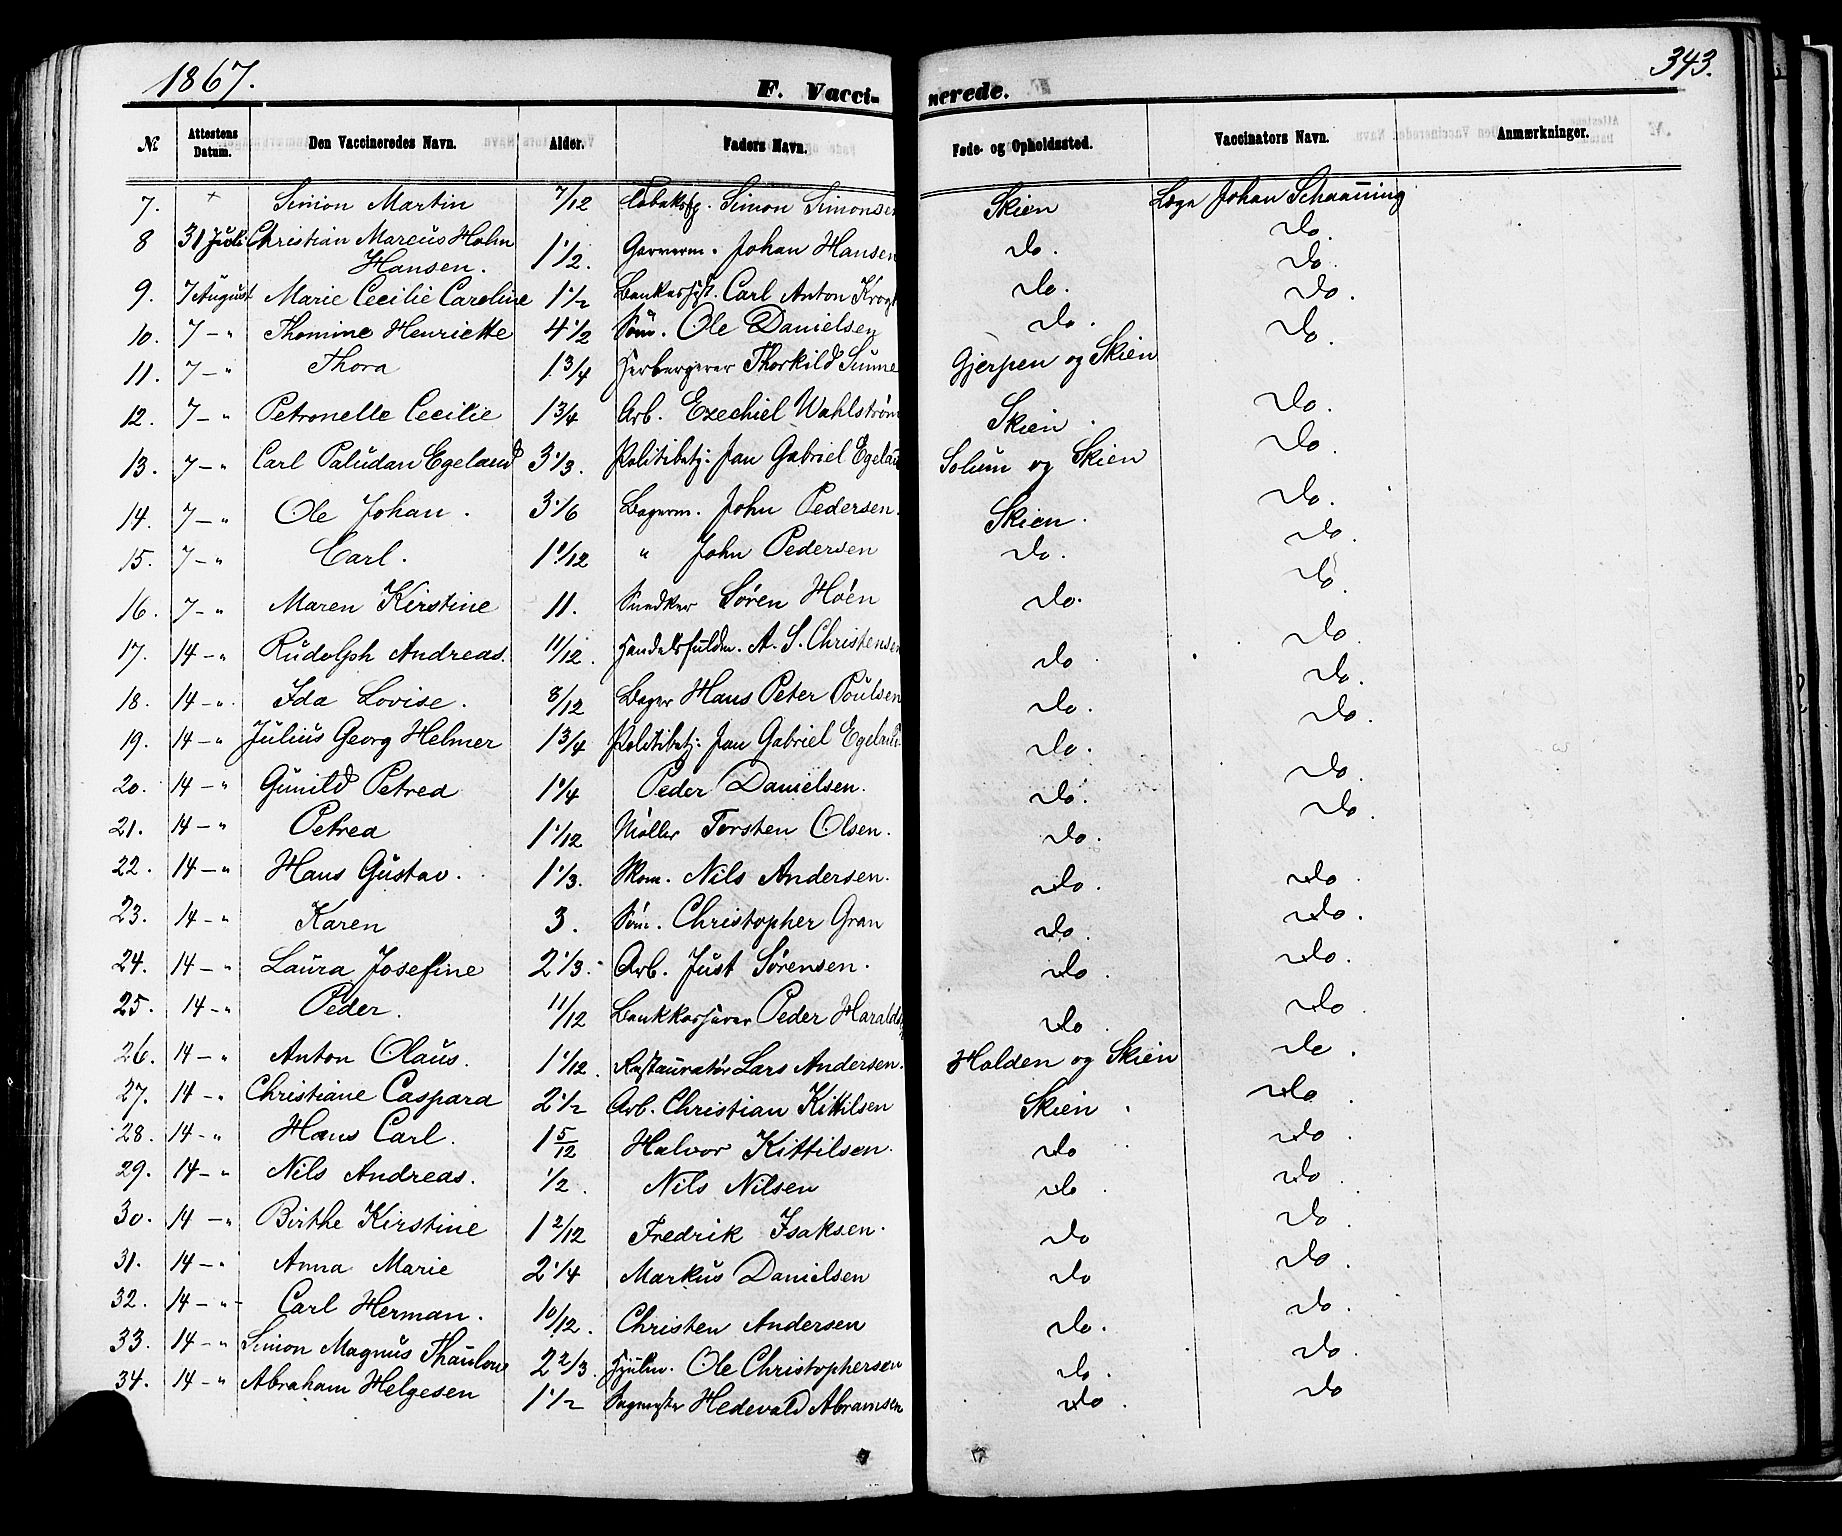 1867.
343.
F. Vaccinerede.
№ Attestens Datum. Den Vaccineredes Navn. Alder. Faders Navn. Føde- og Opholdssted. Vaccinators Navn. Anmærkninger.
7. + Simon Martin 7/12 Simon Simonsen Skien Læge Johan Schanning
8 31 Juli Christian Marcus Holm Hansen. 1 1/2. Garverm. Johan Hansen do. do.
9. 7 August Marie Cecilie Caroline 1 1/2 Carl Anton Krogh do. do.
10. 7 - " Thomine Henriette 4 1/2 Søm. Ole Danielsen do. do.
11. 7 - " Thora 1 3/4 Herbergerer Thorkild Sunne Gjerpen og Skien do.
12. 7 - " Petronelle Cecilie 1 3/4 Arb. Ezechiel Wahlstrøm Skien. do.
13. 7 - " Carl Paludan Egeland 3 1/3. Politibetj: Jan Gabriel Egeland Solum og Skien do.
14. 7 - " Ole Johan. 3 1/6 Bagerm. John Pedersen. Skien. do.
15. 7 - " Carl. 1 1/12 " John Pedersen do. do.
16. 7 - " Maren Kirstine 11. Snedker Søren Höen do. do.
17. 14 - " Rudolph Andreas. 11/12. Handelsfuldm. A. S. Christensen do. do.
18. 14 - " Ida Lovise. 8/12 Bager Hans Peter Poulsen do. do.
19. 14 - " Julius Georg Helmer 1 3/4 Politibetj: Jan Gabriel Egeland do. do.
20. 14 - " Gunild Petrea 1 1/4 Peder Danielsen. do. do.
21. 14 - " Petrea 1 1/12 Møller Torsten Olsen. do. do.
22. 14 - " Hans Gustav. 1 1/3. Skom. Nils Andersen. do. do.
23. 14 - " Karen 3. Søm. Christopher Gran do. do.
24. 14 - " Laura Josefine 2 1/3. Arb. Just Sørensen. do. do.
25. 14 - " Peder. 11/12 Bankkasserer Peder do. do.
26. 14 - " Anton Olaus. 1 1/12. Restauratør Lars Andersen. Halden og Skien do.
27. 14 - " Christiane Caspara 2 1/2 Arb. Christian Kittilsen Skien. do.
28. 14 - " Hans Carl. 1 5/12 Halvor Kittilsen. do do.
29. 14 - " Nils Andreas. 1/2. Nils Nilsen do. do.
30. 14 - " Birthe Kirstine 1 2/12 Fredrik Isaksen. do do.
31. 14 - " Anna Marie 2 1/4 Markus Danielsen do do.
32. 14 - " - Carl Herman. 10/12. Christen Andersen do. do.
33. 14 - " Simon Magnus Thaulow 2 2/3. Hjulm. Ole Christophersen do. do.
34. 14 - " Abraham Helgesen 1 1/2 Sagmester Hedevald Abramsen do. do